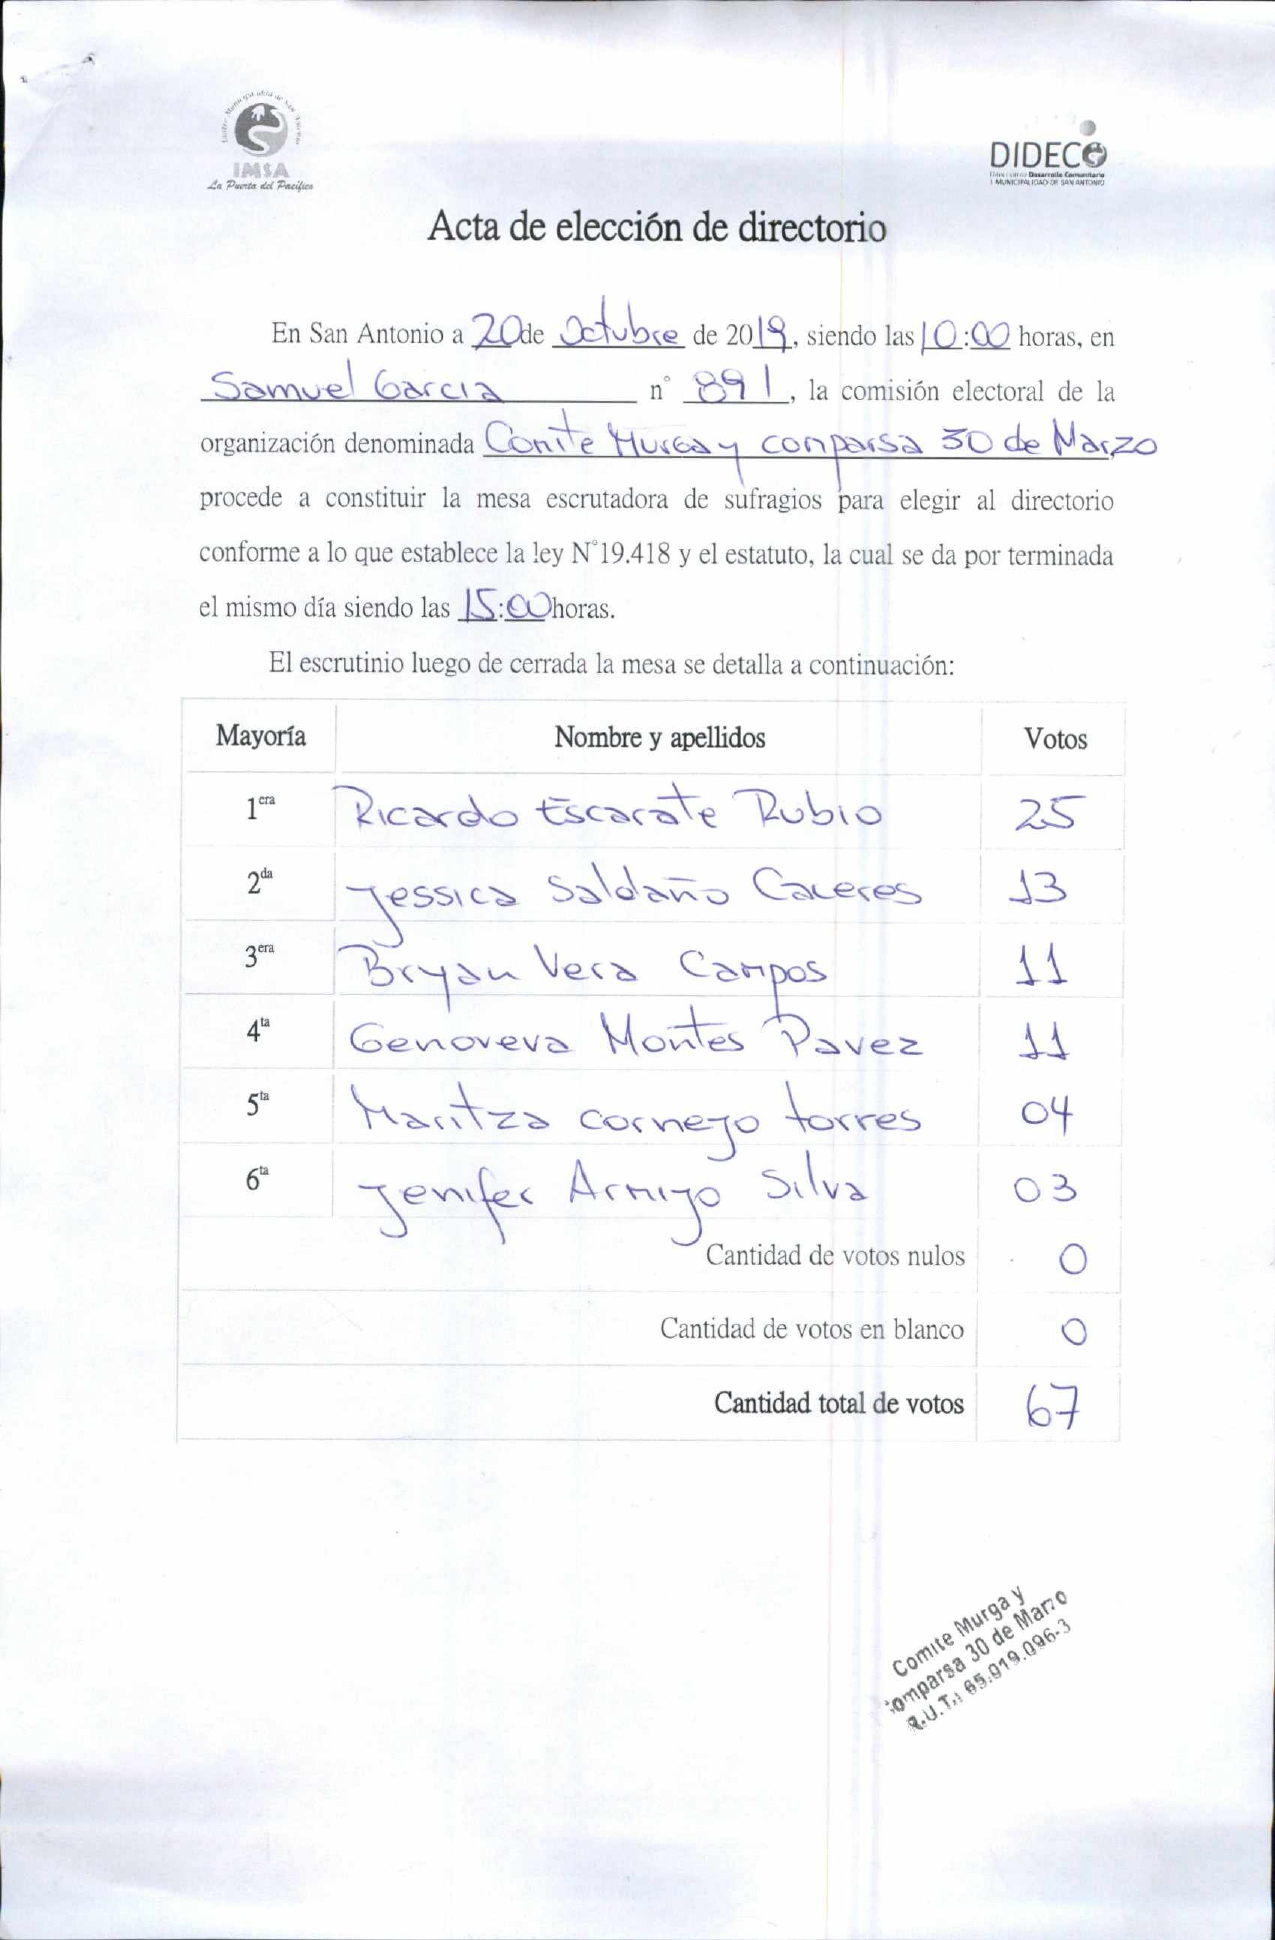 IMSA
La Puerta del Pacífico
DIDECO
Desarrollo Comunitario
I MUNICIPALIDAD DE SAN ANTONIO
Acta de elección de directorio
En San Antonio a 20 de Octubre de 2019, siendo las 10:00 horas, en
Samuel Garcia n° 891, la comisión electoral de la
organización denominada Comite Murga y comparsa 30 de Marzo
procede a constituir la mesa escrutadora de sufragios para elegir al directorio
conforme a lo que establece la ley N°19.418 y el estatuto, la cual se da por terminada
el mismo día siendo las 15:00 horas.
El escrutinio luego de cerrada la mesa se detalla a continuación:
Mayoría Nombre y apellidos Votos
1era Ricardo Escarate Rubio 25
2da Jessica Saldaño Caceres 13
3era Bryan Vera Campos 11
4ta Genoveva Montes Pavez 11
5ta Maritza cornejo torres 04
6ta Jenifer Armijo Silva 03
Cantidad de votos nulos 0
Cantidad de votos en blanco 0
Cantidad total de votos 67
Comite Murga y
omparsa 30 de Marzo
R.U.T.: 65.919.096-3